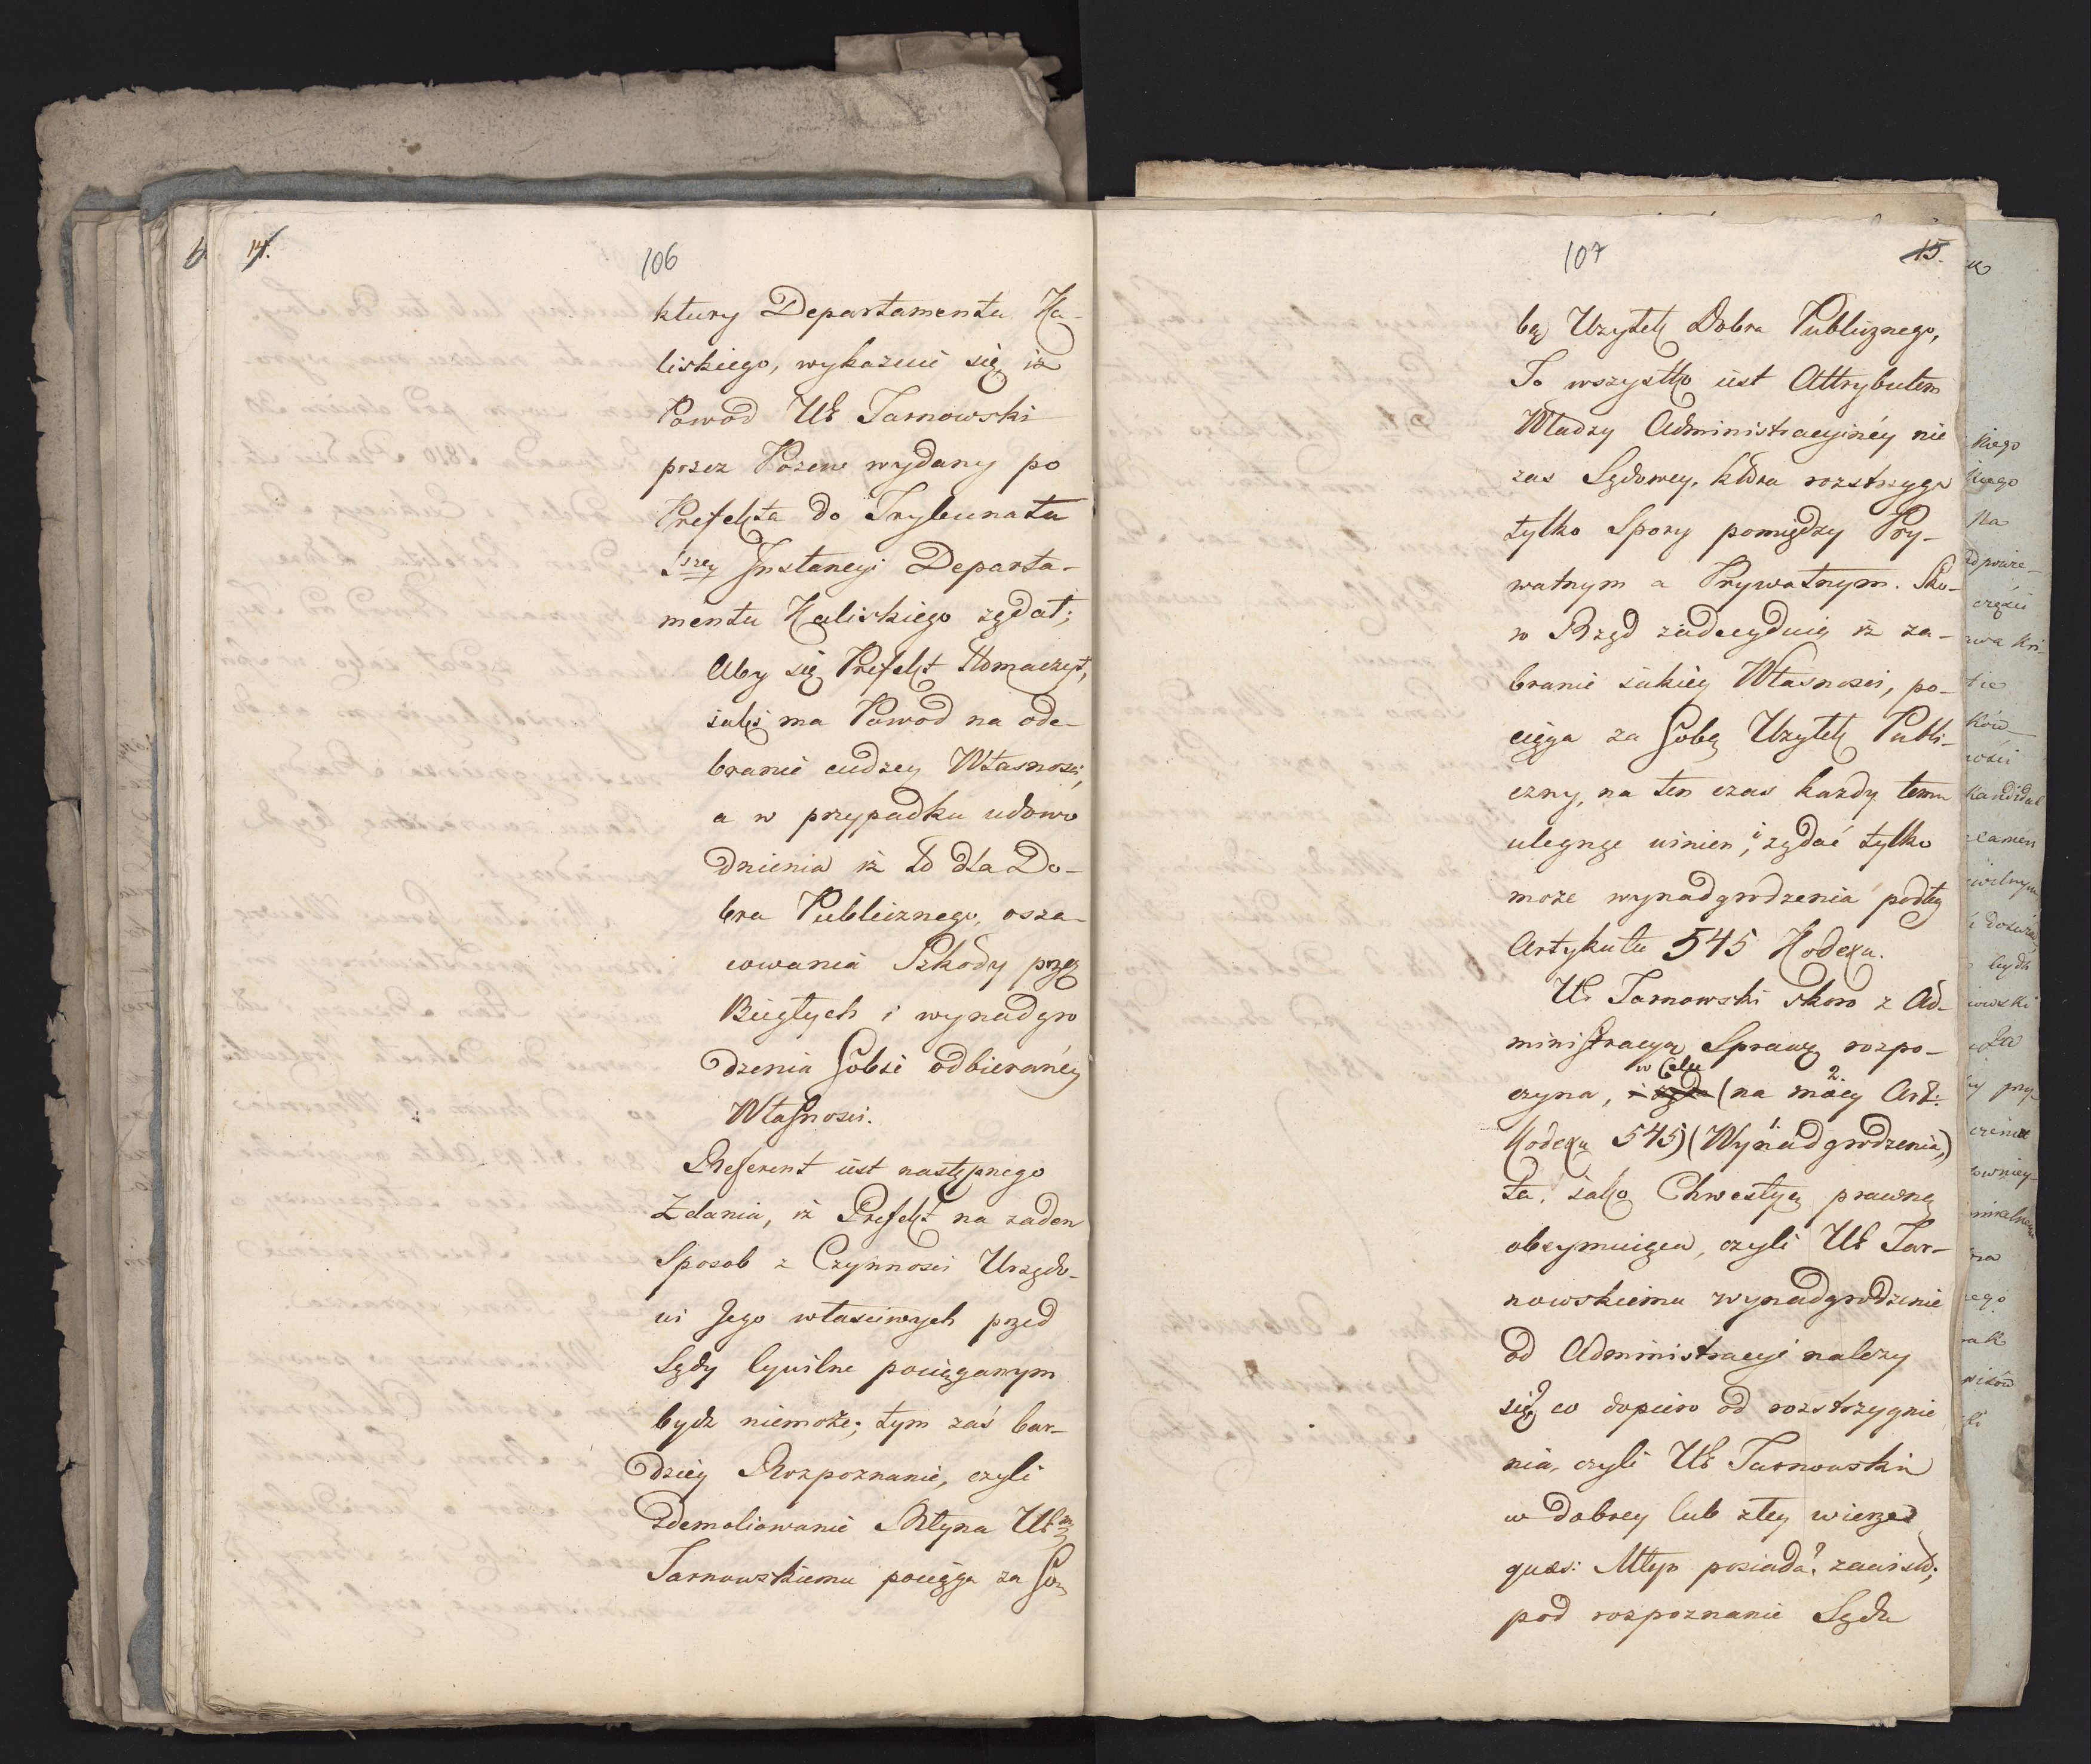 14.
106
ktury Departamentu Ka-
liskiego, wykazuie się, iż
Powod Ur Tarnowski
przez Pozew wydany po
Prefekta do Trybunatu
Iszey Instancyi Departa-
mentu Kaliskiego żądał;
Aby się Prefekt tłomaczył,
iaki ma Powod na ode-
branie cudzey Własnosci,
a w przypadku udowo
dnienia iż to dla Do-
bra Publicznego, osza-
cowania Szkody przez
Biegłych i wynadgro
dzenia Sobie odbieranéy
Własnosci.
Referent iest następnego
Zdania, iż Prefekt na żaden
Sposob z Czynnosci Urzędo-
wi Jego własciwych przed
Sądy Cywilne pociąganym
bydź niemoże; tym zaś bar-
dziey Rozpoznanie, czyli
zdemoliowanie Młyna Urmu
Tarnowskiemu pociąga za So-
107
15.
bą Uzytek Dobra Publicznego,
To wszystko iest Attrybutem
Władzy Administracyinéy nie
zas Sądowey, która rozstrzyga
tylko Spory pomiędzy Pry-
watnym a Prywatnym. Sko-
ro Rząd zadecyduie iż za-
branie iakiey Własnosci, po-
ciąga za Sobą Uzytek Publi-
czny, na ten czas kazdy temu
ulegnąć winien, i żądać tylko
może wynadgrodzenia podług
Artykułu 545 Kodexu.
Ur Tarnowski skoro z Ad-
ministracyą Sprawę rozpo-
w Celu 2.
czyna, (na mocy Art:
1.
Kodexu 545) (Wynadgrodzenia,)
ta, iako Chwestyą prawną
obeymuiąca, czyli Ur Tar-
nowskiemu wynadgrodzenie
od Administracyi nalezy
się? co dopiero od rozstrzygnie
nia, czyli Ur Tarnowski
w dobrey lub złey wierze
quaes: Młyn posiada? zawisło;
pod rozpoznanie Sądu